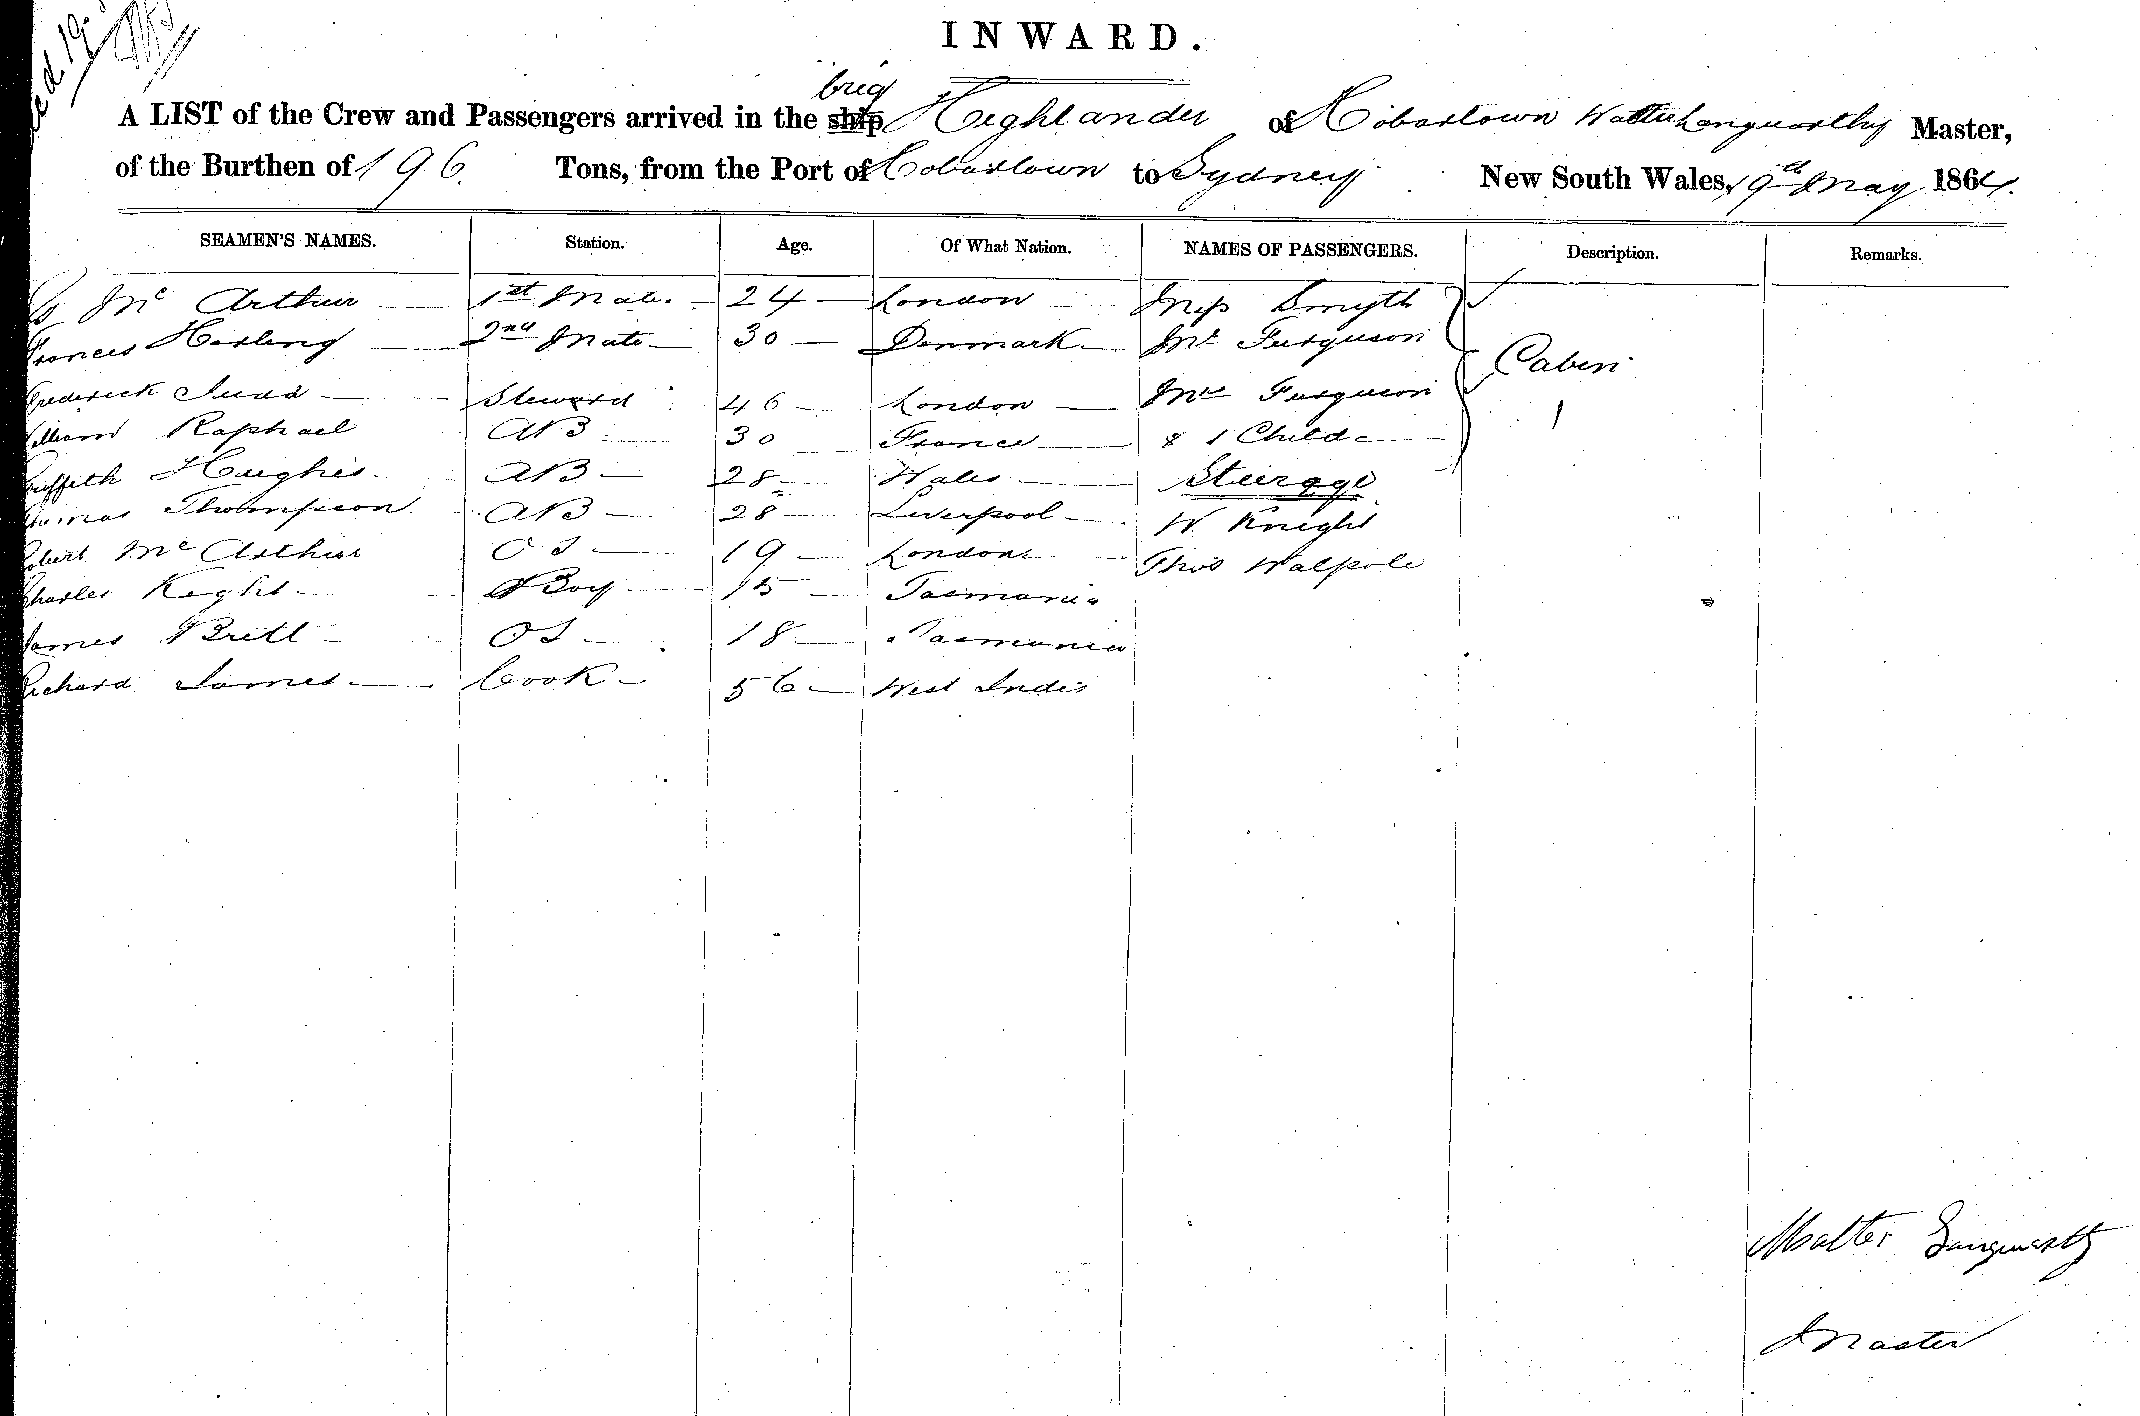 INWARD.
A LIST of the Crew and Passengers arrived in the ship brig Highlander of Hobartown Walter Langworthy Master,
of the Burthen of 196 Tons, from the Port of Hobartown to Sydney New South Wales, 19th May 1864.
SEAMEN'S NAMES. Station. Age. Of What Nation. NAMES OF PASSENGERS. Description. Remarks.
Mc Arthur 1st Mate 24 London Miss Smyth
Frances Herling 2nd Mate 30 Denmark Mr Furguson Cabin
Frederick Judd Steward 46 London Mrs Furguson
William Raphael AB 30 France & 1 Child
Griffith Hughes AB 28 Wales Steerage
Thomas Thompson AB 28 Liverpool W Knight
Robert Mc Arthur OS 19 London Thos Walpole
Charles Kight Boy 15 Tasmania
James Britt OS 18 Tasmania
Richard James Cook 56 West Indis
Walter Langworthy
Master